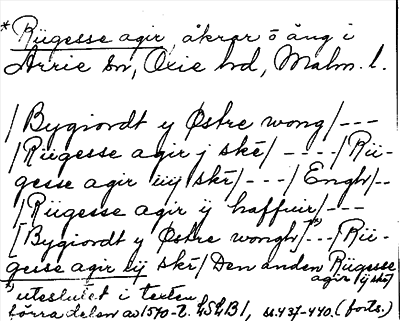 *Rügesse agir, åkrar o äng i
Arrie sn, Oxie hd, Malm. l.
/Bygiordt y Østre wong/---
/Rügesse agir j ské/ ----/Rü-
gesse agir iij skr/---/Engh/--
/Rügesse agir ij haffuir/---
/Bygiordt y Østre wongh/"---/Rü-
geise agir iij skr/Den anden Rügesse
agir (ij skr)
"uteslutet i texten
börra delen av 1570-t. LSLB1, s. 437-440. (forts.)